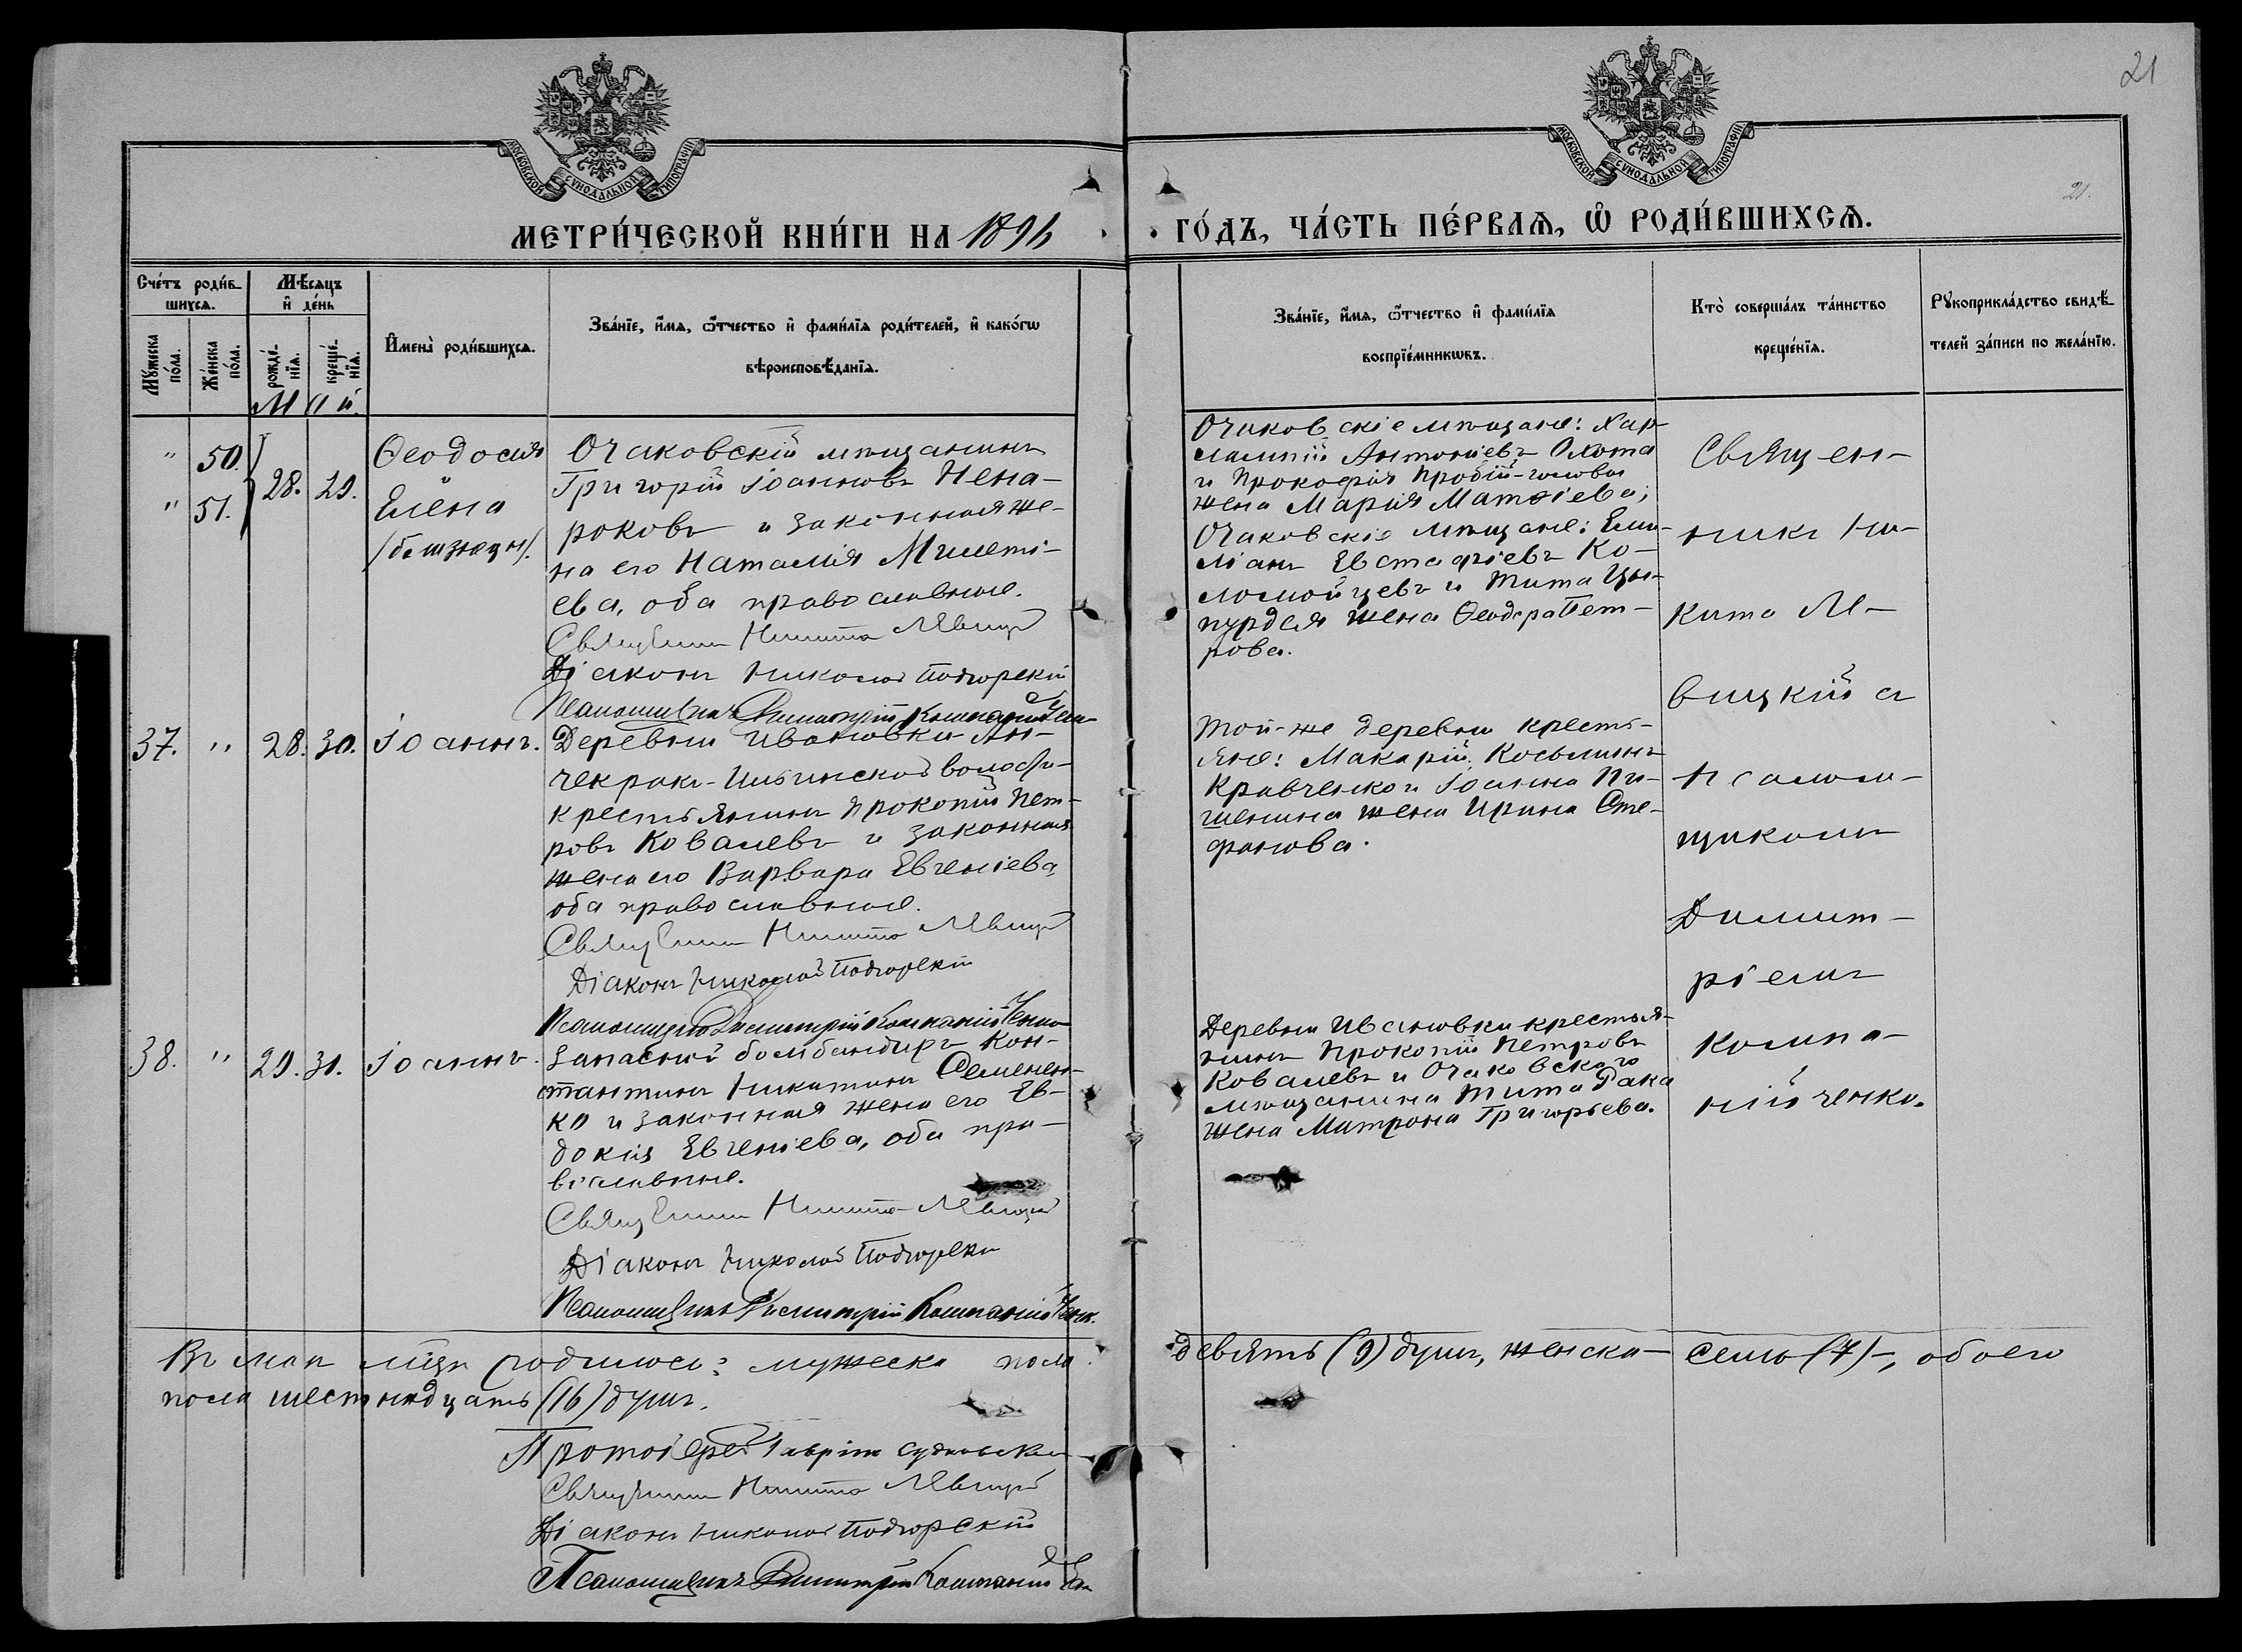 21
МОСКОВСКОЙ СѴНОДАЛЬНОЙ ТИПОГРАФІИ
МОСКОВСКОЙ СѴНОДАЛЬНОЙ ТИПОГРАФІИ
21.
МЕТРИ́ЧЕСКОЙ КНИ́ГИ НА 1896
ГО́ДЪ, ЧА́СТЬ ПЕ́РВАѦ, Ѡ҆ РОДИ́ВШИХСѦ.
Сче́тъ роди́в-
шихсѧ.
Мѣ́сяцъ
и҆ де́нь
Мꙋ́жеска
по́ла.
Же́нска
по́ла.
рожде́-
нїѧ.
креще́-
нїѧ.
И҆мена̀ роди́вшихсѧ.
Зва́нїе, и҆́мѧ, ѻ҆́тчество и҆ фами́лїѧ роди́телей, и҆ како́гѡ
вѣроисповѣ́данїѧ.
Зва́нїе, и҆́мѧ, ѻ҆́тчество и҆ фами́лїѧ
воспрїе́мникѡвъ.
Кто̀ соверша́лъ та́инство
креще́нїѧ.
Рꙋкоприкла́дство свидѣ́-
телей за́писи по жела́нїю.
Май.
" 50.
" 51.
28. 29.
Ѳеодосія
Елена
/близнецы/.
Очаковскій мѣщанинъ
Григорій Іоанновъ Нена-
роковъ и законная же-
на его Наталія Милеті-
ева, оба православные.
Священникъ Никита Левицкій
Діаконъ Николай Подгорскій
Псаломщикъ Димитрій Компанійченко
Очаковскіе мѣщане: Хар-
лампій Антоніевъ Охота
и Прокофія Пробій-головы
жена Марія Матѳіева;
Очаковскіе мѣщане: Еми-
ліанъ Евстафіевъ Ко-
ломойцевъ и Тита Цы-
пурдея жена Ѳеодора Пет-
рова.
37. " 28. 30. Іоаннъ.
Деревни Ивановки Ан-
чекрако-Ильинской волости
крестьянинъ Прокопій Пет-
ровъ Ковалевъ и законная
жена его Варвара Евгеніева,
оба православные.
Священникъ Никита Левицкій
Діаконъ Николай Подгорскій
Псаломщикъ Димитрій Компанійченко
Той-же деревни кресть-
яне: Макарій Косьминъ
Кравченко и Іоанна Пи-
шенина жена Ирина Сте-
фанова.
38. " 29. 31. Іоаннъ.
Запасной бомбандиръ Кон-
стантинъ Никитинъ Семенен-
ко и законная жена его Ев-
докія Евгеніева, оба пра-
вославные.
Священникъ Никита Левицкій
Діаконъ Николай Подгорскій
Псаломщикъ Димитрій Компанійченко.
Деревни Ивановки крестья-
нинъ Прокопій Петровъ
Ковалевъ и Очаковскаго
мѣщанина Тита Рака
жена Матрона Григорьева.
Священ-
никъ Ни-
кита Ле-
вицкій съ
псалом-
щикомъ
Димит-
ріемъ
Компа-
нійченко.
Въ маѣ мѣцѣ родилось: мужеска пола девять (9) душъ, женска – семь (7) –, обоего
пола шестнадцать (16) душъ.
Протоіерей Гавріилъ Судковскій
Священникъ Никита Левицкій
Діаконъ Николай Подгорскій
Псаломщикъ Димитрій Компанійченко